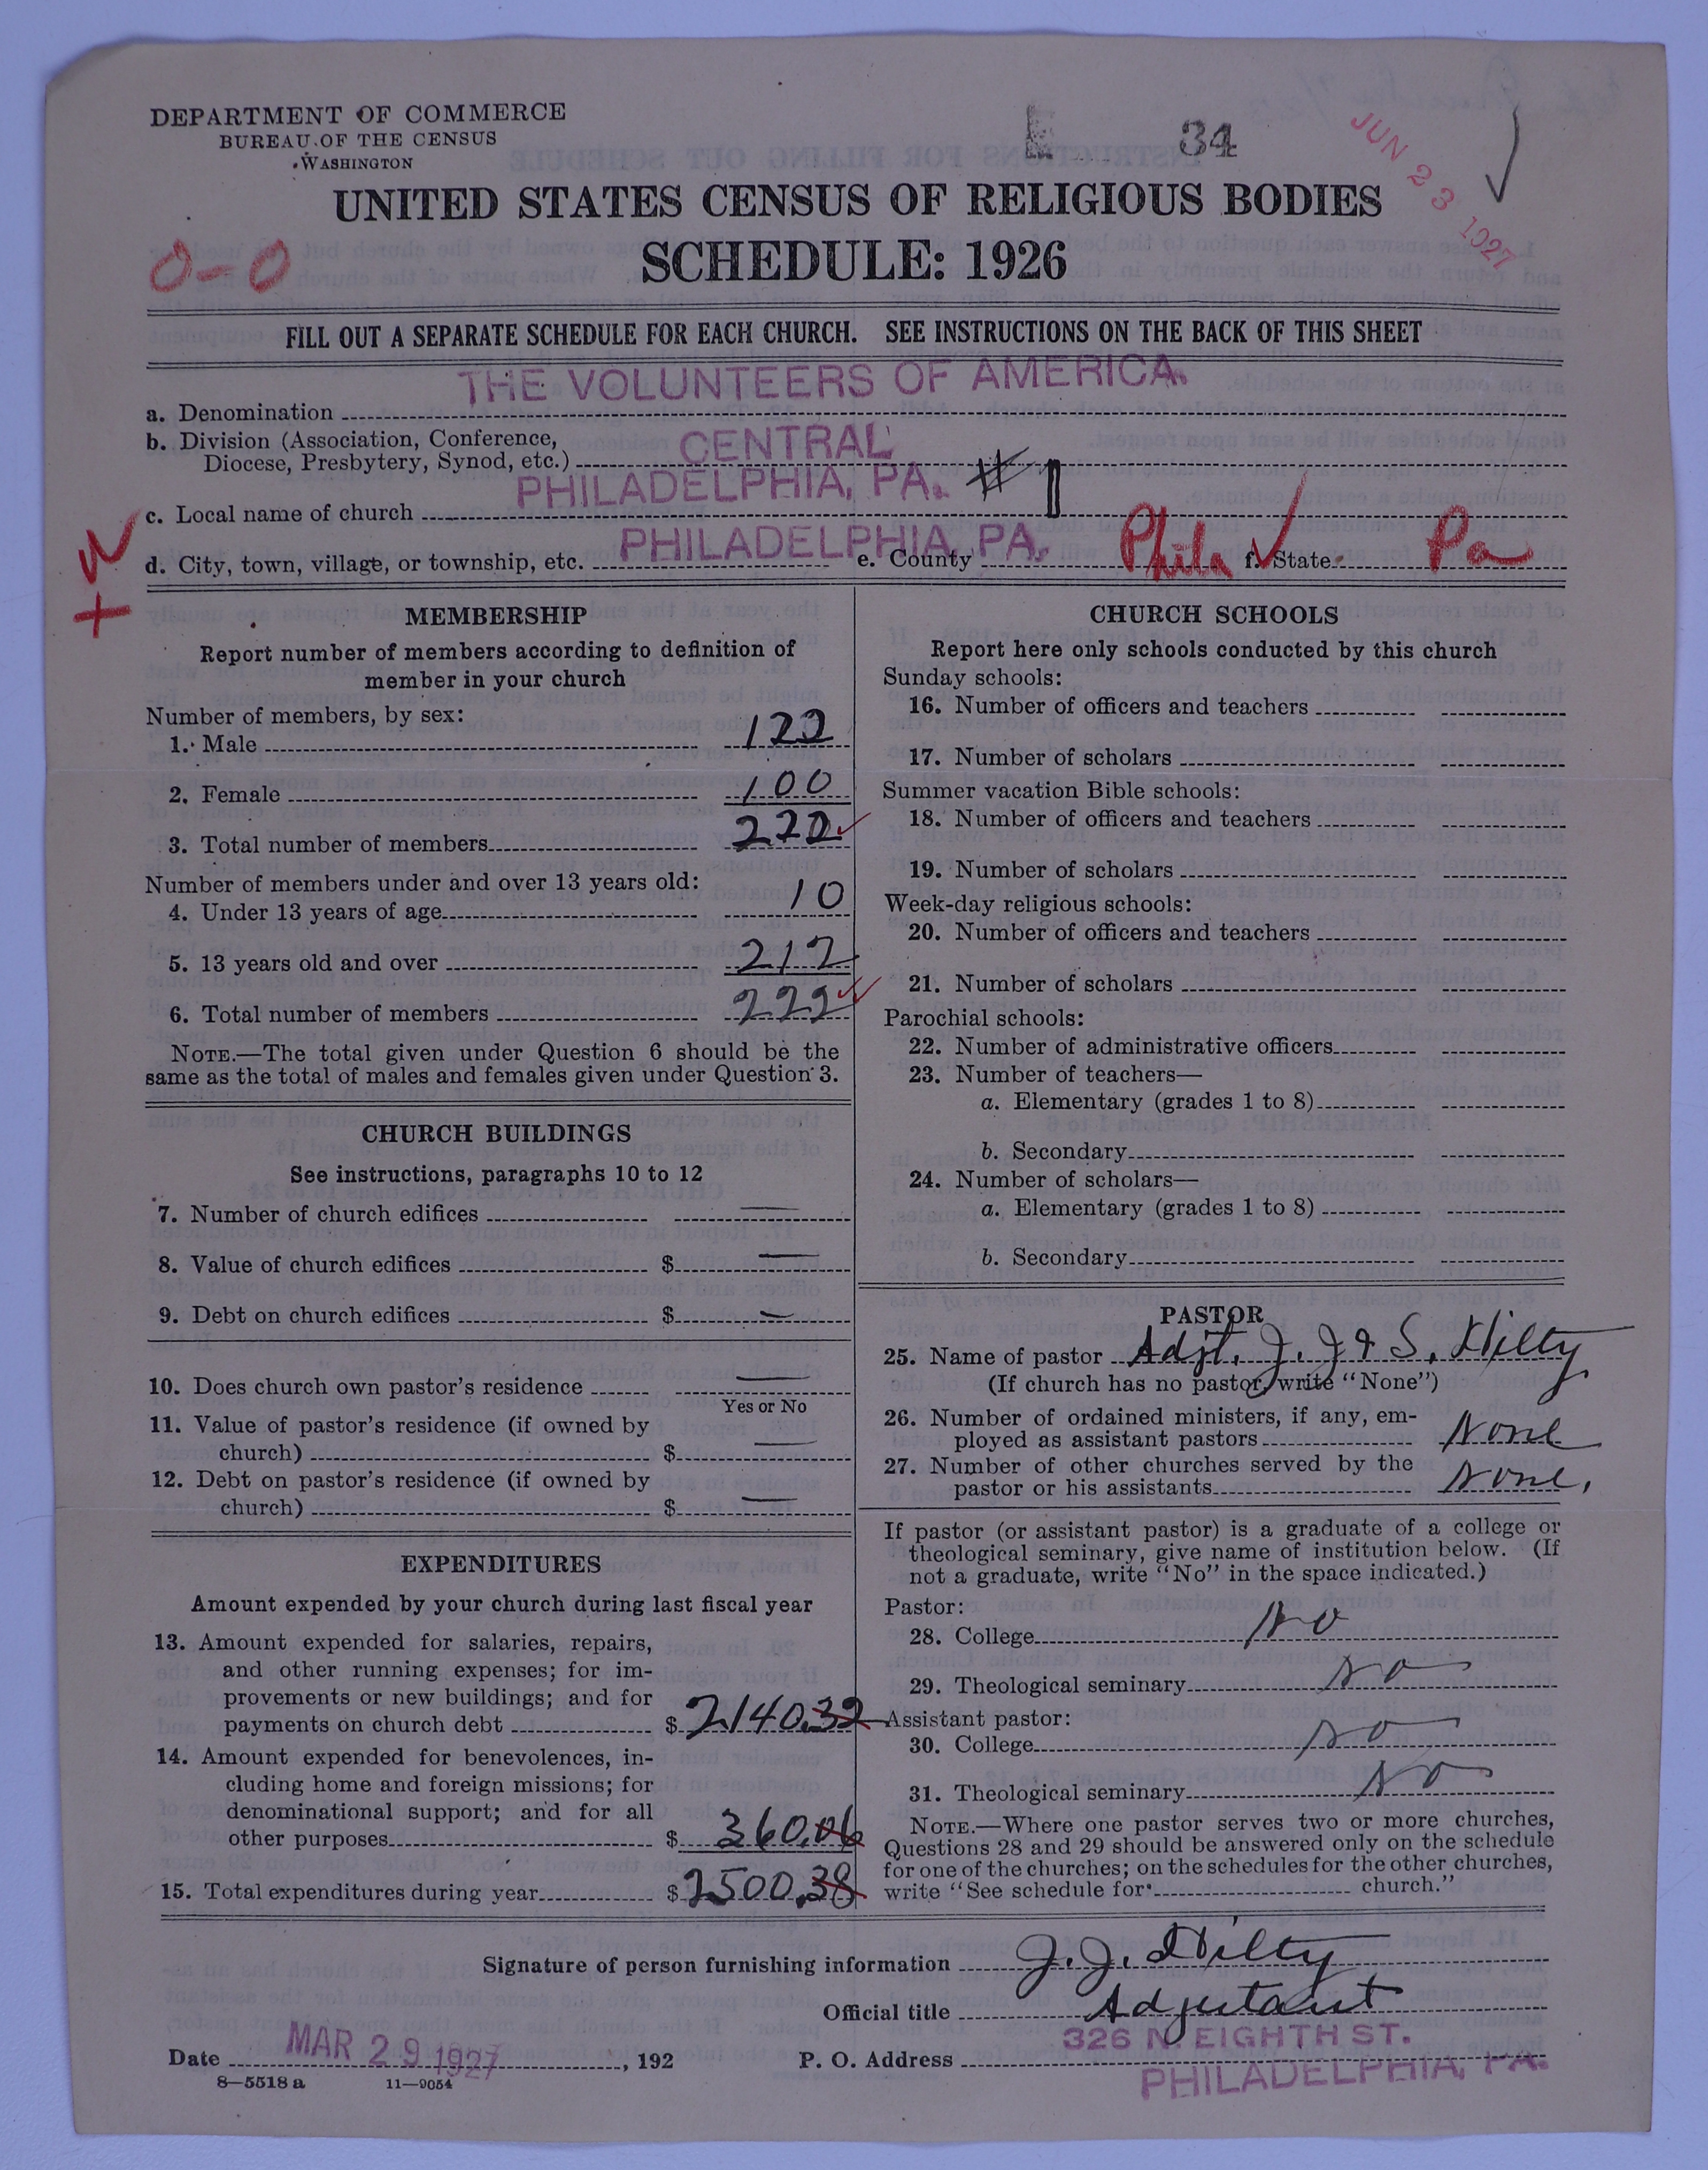 DEPARTMENT OF COMMERCE
BUREAU OF THE CENSUS
WASHINGTON
E 34
JUN 23 1927
UNITED STATES CENSUS OF RELIGIOUS BODIES
SCHEDULE: 1926
0-0
FILL OUT A SEPARATE SCHEDULE FOR EACH CHURCH. SEE INSTRUCTIONS ON THE BACK OF THIS SHEET
a. Denomination THE VOLUNTEERS OF AMERICA.
b. Division (Association, Conference,
Diocese, Presbytery, Synod, etc.) CENTRAL
c. Local name of church PHILADELPHIA, PA. #1
d. City, town, village, or township, etc. PHILADELPHIA, PA. e. County Phila f. State Pa
MEMBERSHIP
Report number of members according to definition of
member in your church
Number of members, by sex:
1. Male 122
2. Female 100
3. Total number of members 222
Number of members under and over 13 years old:
4. Under 13 years of age 10
5. 13 years old and over 212
6. Total number of members 222
NOTE.—The total given under Question 6 should be the
same as the total of males and females given under Question 3.
CHURCH BUILDINGS
See instructions, paragraphs 10 to 12
7. Number of church edifices —
8. Value of church edifices $ —
9. Debt on church edifices $ —
10. Does church own pastor's residence —
Yes or No
11. Value of pastor's residence (if owned by
church) $ —
12. Debt on pastor's residence (if owned by
church) $ —
EXPENDITURES
Amount expended by your church during last fiscal year
13. Amount expended for salaries, repairs,
and other running expenses; for im-
provements or new buildings; and for
payments on church debt $ 2140.32
14. Amount expended for benevolences, in-
cluding home and foreign missions; for
denominational support; and for all
other purposes $ 360.06
15. Total expenditures during year $ 2500.38
CHURCH SCHOOLS
Report here only schools conducted by this church
Sunday schools:
16. Number of officers and teachers
17. Number of scholars
Summer vacation Bible schools:
18. Number of officers and teachers
19. Number of scholars
Week-day religious schools:
20. Number of officers and teachers
21. Number of scholars
Parochial schools:
22. Number of administrative officers
23. Number of teachers—
a. Elementary (grades 1 to 8)
b. Secondary
24. Number of scholars—
a. Elementary (grades 1 to 8)
b. Secondary
PASTOR
25. Name of pastor Adjt. J. J & S. Hilty
(If church has no pastor, write "None")
26. Number of ordained ministers, if any, em-
ployed as assistant pastors None
27. Number of other churches served by the
pastor or his assistants None.
If pastor (or assistant pastor) is a graduate of a college or
theological seminary, give name of institution below. (If
not a graduate, write "No" in the space indicated.)
Pastor:
28. College No
29. Theological seminary No
Assistant pastor:
30. College No
31. Theological seminary No
NOTE.—Where one pastor serves two or more churches,
Questions 28 and 29 should be answered only on the schedule
for one of the churches; on the schedules for the other churches,
write "See schedule for church."
Signature of person furnishing information J. J. Hilty
Official title Adjutant
Date MAR 29 1927, 192 P. O. Address 326 N. EIGHTH ST.
PHILADELPHIA, PA.
8—5518 a 11—9054